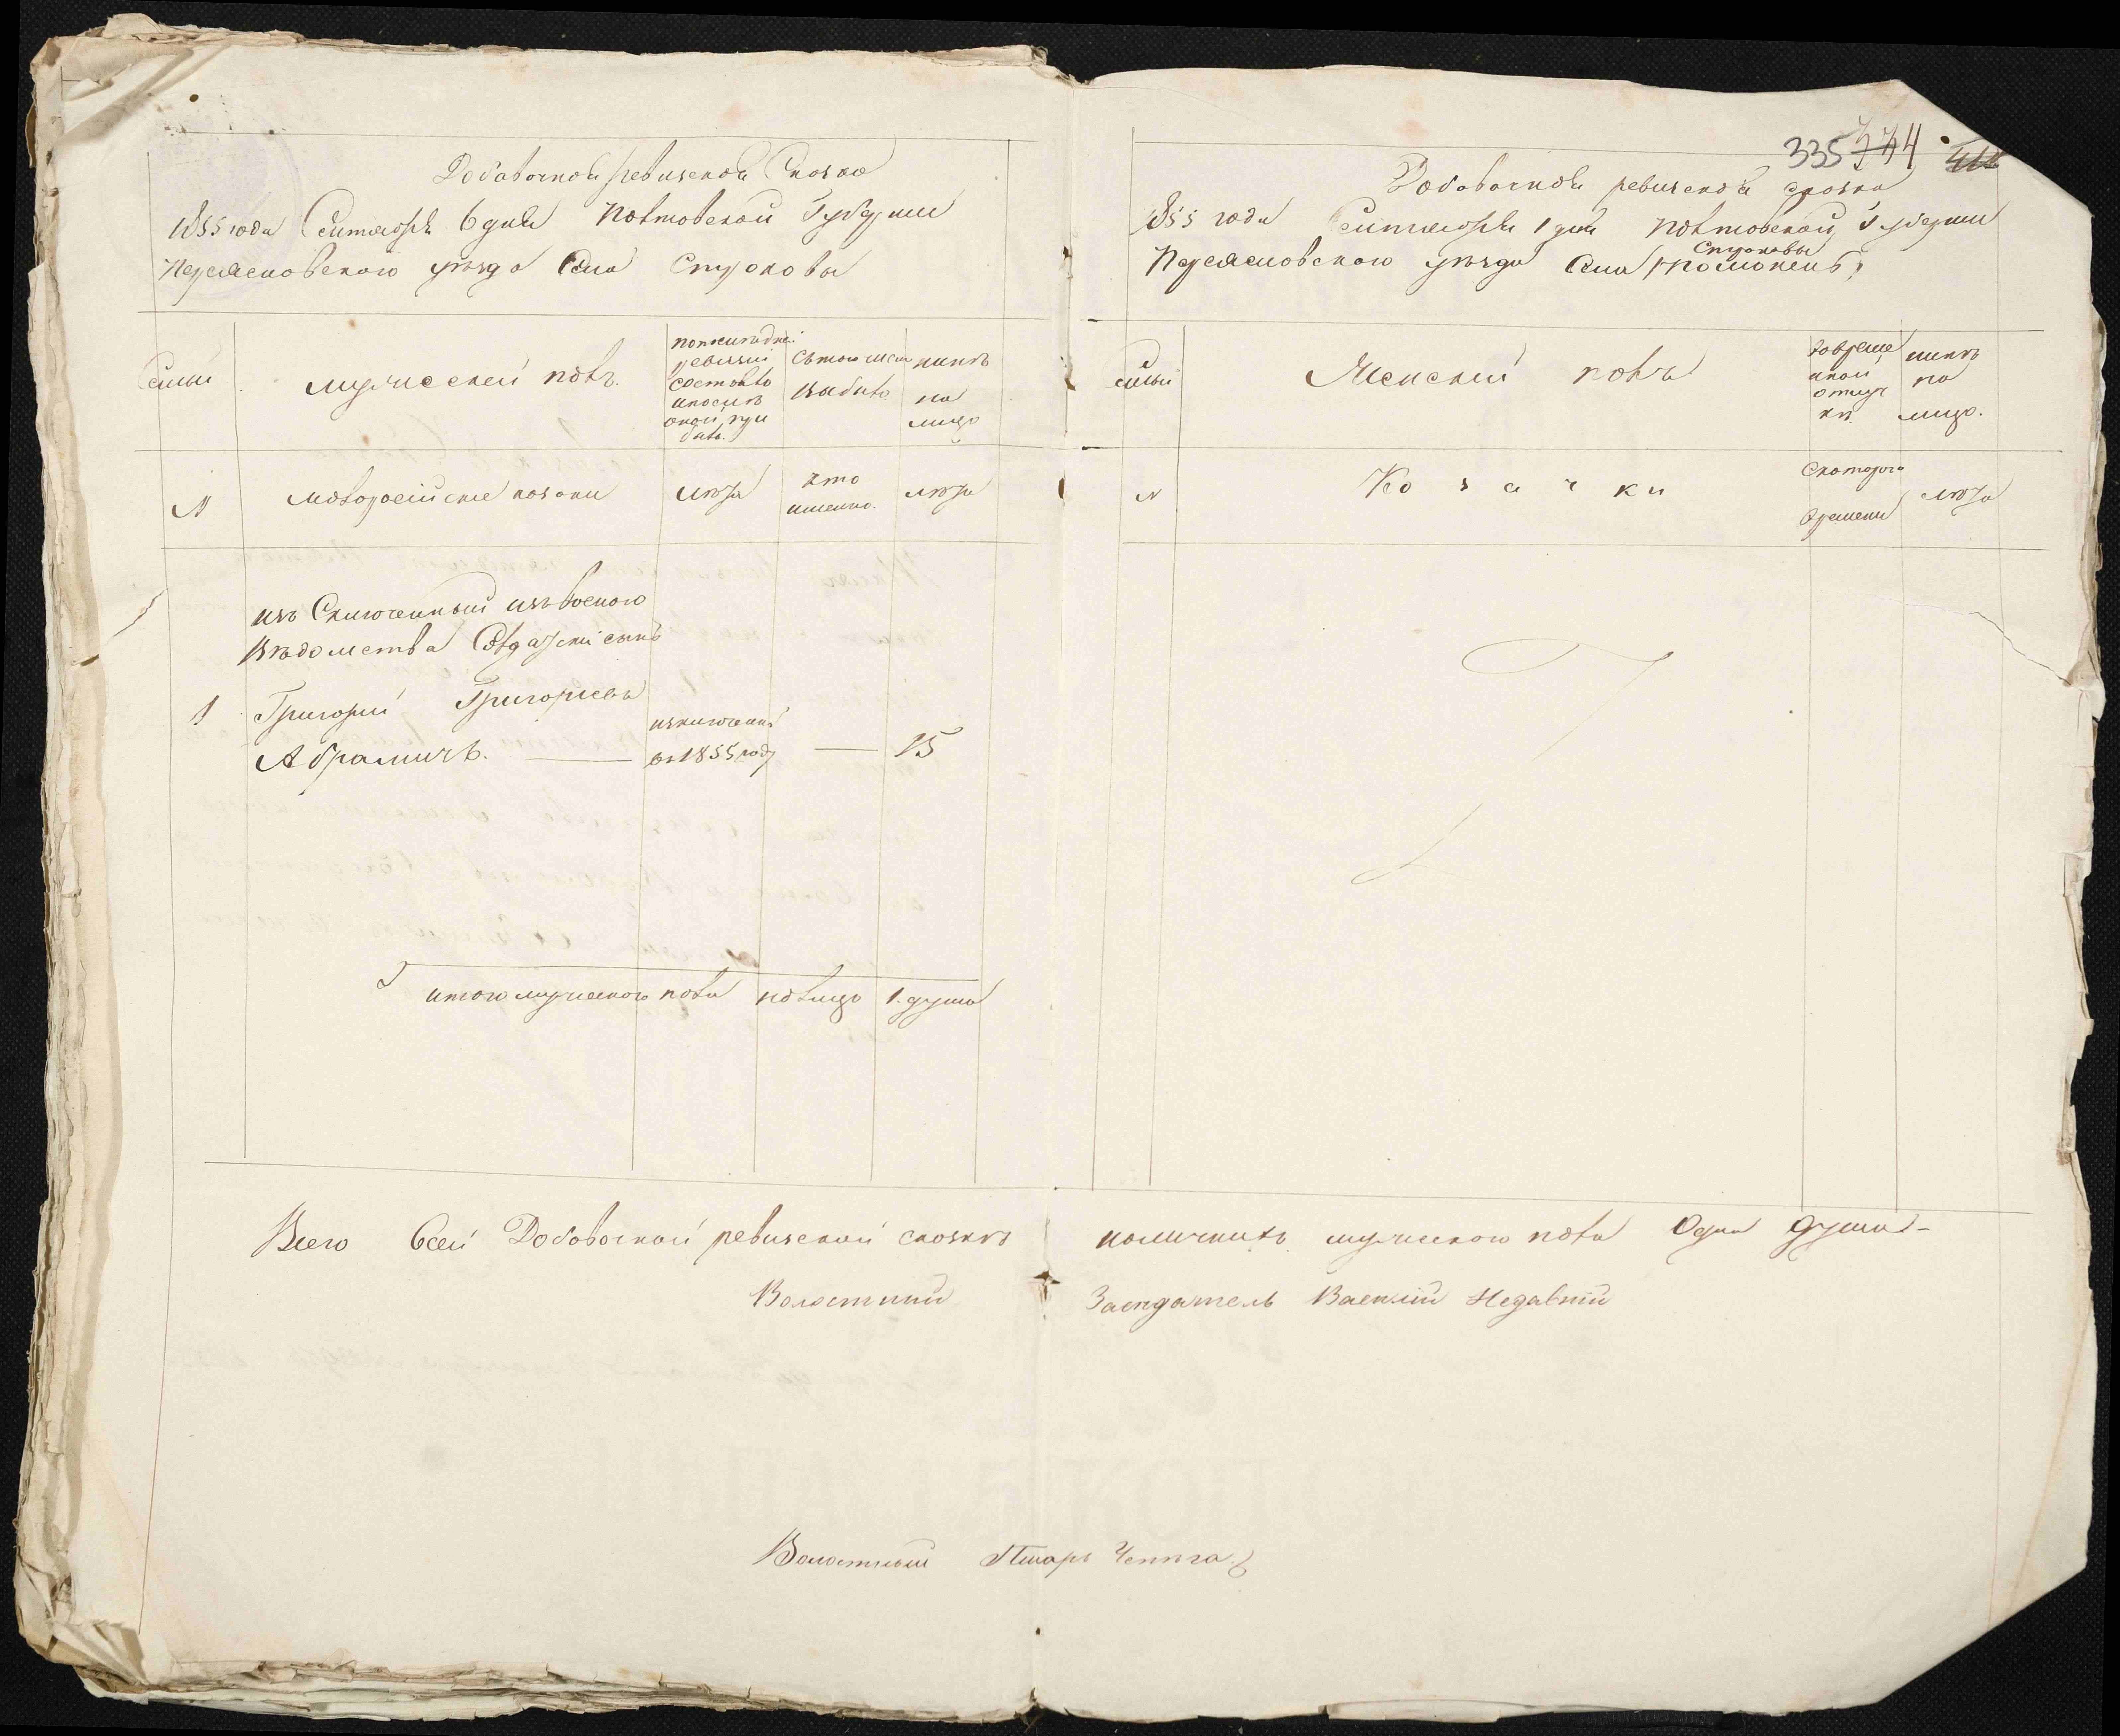 Добавочной ревизской сказка
1855 года Сентября 6 дня Полтовской Губернии
Переясловского уезда Села Строковы
Семьи
мужеский полъ.
попоследней
ревизии
состояло
и после
оной при
было.
Съ того числа
выбыло
ныне
на
лицо
№
малоросійские козаки
лета
кто
именно.
лета
изъ Сключенный изъ военого
ведомства Солдатский сынъ
1 Григорий Григориевъ
Абрамичъ.
изключенный
въ 1855 году
15
итого мужеского пола
налицо
1. душа
335 774 4
Добавочной ревизской сказка
1855 года Сентября 1 дня Полтовской Губернии
Строковы
Переясловского уезда Села
семьи
Женский полъ
Во време
нной
отлуч
ке
ныне
на
лицо.
№
Козачки
С которого
времени
лета
Всего в сей Добовочной ревизской сказке наличныхъ мужеского пола Одна душа -
Волостный Заседатель Василий Недавний
Волостный Писарь Чепига